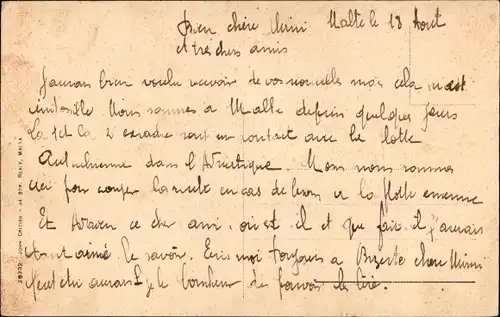 Bien chère Mimi Malte le 18 Aout
et très chers amis
J'aurais bien voulu recevoir de vos nouvelles mais cela m'est
impossible Nous sommes a Malte depuis quelques jours
la 1 et la 2 escadre sont en contact avec la flotte
Autrichienne dans l'Adriatique. Nous nous sommes
ici pour couper la route en cas de besoin a la flotte ennemie
Et ce cher ami. ou est il et que fait il j'aurais
tant aimé le savoir. Ecris moi toujours a Bizerte chere Mimi
peut etre aurais je le bonheur de pouvoir te lire.
28332 - JOHN CRITIEN - 34 STR. REALE, MALTA